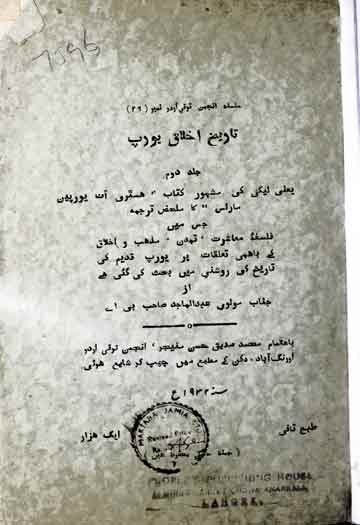 7596
سلسلہ انجمن ترقی اردو نمبر (۲۹)
تاریخ اخلاق یورپ
جلد دوم
یعنی لیکی کی مشہور کتاب " ہسٹری آف یورپین
مارلس " کا ملخص ترجمہ
جس میں
فلسفۂ معاشرت ' تمدن ' مذہب و اخلاق
کے باہمی تعلقات پر یورپ قدیم کی
تاریخ کی روشنی میں بحث کی گئی ہے
از
جناب مولوی عبدالماجد صاحب بی اے
باہتمام محمد صدیق حسن منیجر ' انجمن ترقی اردو
اورنگ آباد - دکن کے مطبع میں چھپ کر شایع ہوئی
سنہ ۱۹۳۲ ع
طبع ثانی
ایک ہزار
MAKTABA JAMIA
Revised Price
Rs.
PEOPLE'S PUBLISHING HOUSE
ANARKALI
LAHORE.